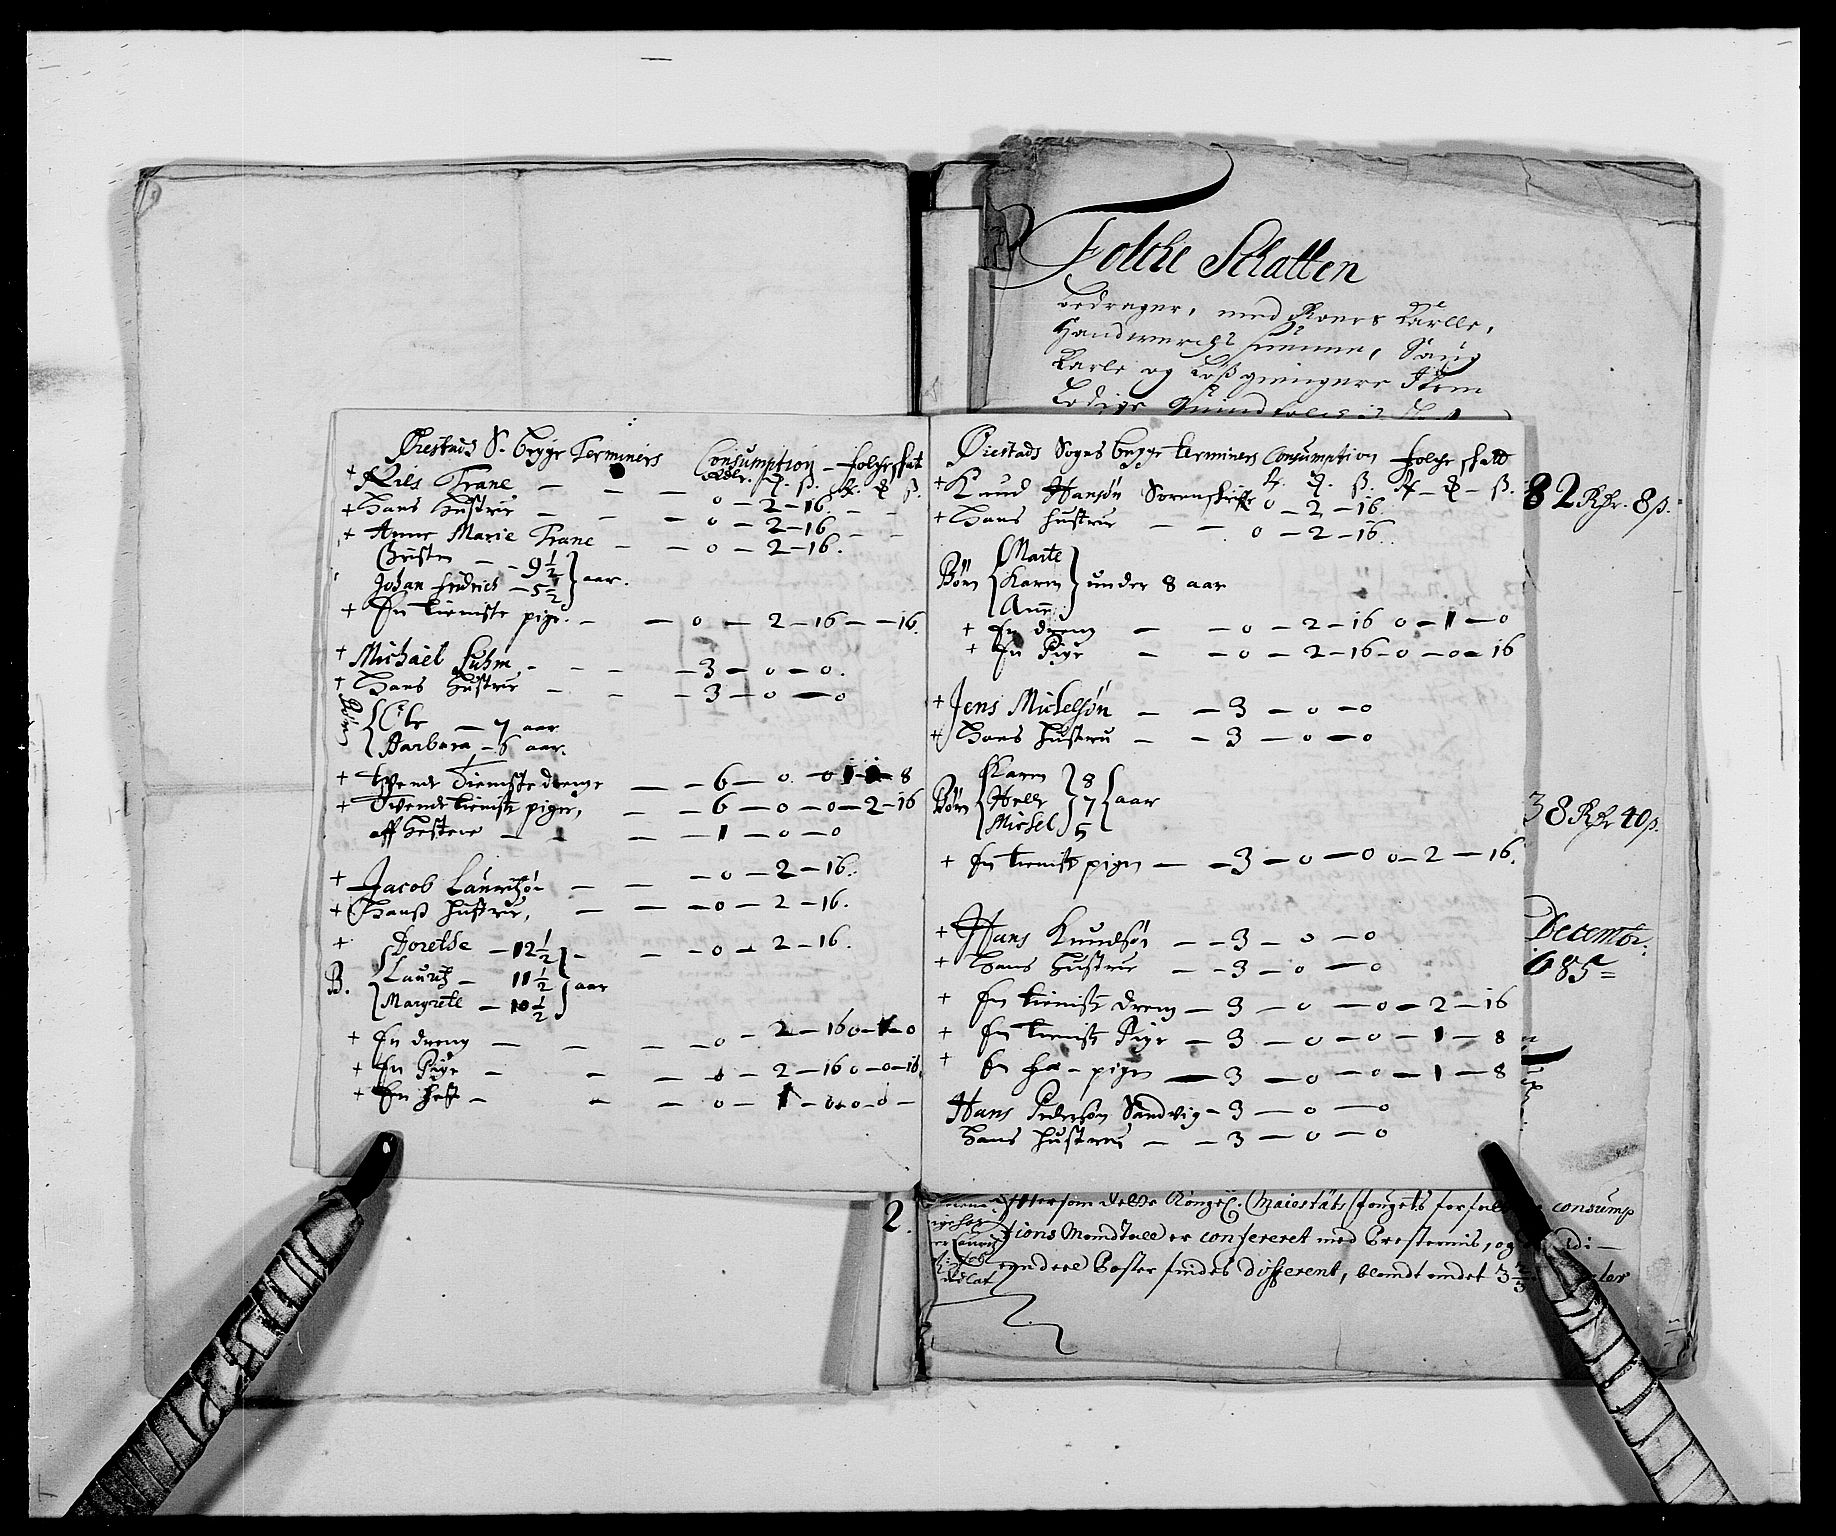 Folche Schatten
bedrager, med
og
Øiestads S. bøyge Terminers Consumption – folcheskat
+ Niels Trane — — — 0 – 2 – 16 – –
+ Hans Hustrue — — — 0 – 2 – 16 – –
+ Anne Marie Trane — — 0 – 2 – 16.
Christen — – 9 1/2
Johan Fridrich – 5 1/2 } aar.
+ En tieniste pige. — — 0 — 2 – 16 — – 16.
+ Michael Luhm – – – 3 – 0 – 0.
+ Hans Hustrue – – – 3 – 0 – 0
Børn { Ole — 7 aar
Barbara – 6 aar.
+ tvende Tienste drenge — – 6 – 0 – 0 1 – 8
+ Tvende tieniste piger, – – 6 – 0 – 0 – 2 – 16
aff Hestene – – – 1 – 0 – 0
+ Jacob Lauritzøn — — – 0 – 2 – 16.
+ Hans Hustrue, — — – 0 – 2 – 16.
+ Dorethe – 12 1/2 – – 0 – 2 – 16.
B. { Lauritz – 11 1/2 } aar
Margrete – 10 1/2
+ En dreng — — — 0 – 2 – 16 0 – 1 – 0
+ En Pige – – – 0 – 2 – 16 0 – 0 – 16.
+ En hest – – – 0 – 1 – 0 0 – 0 –
Øiestads Sogns bøyge terminers Consumption folche skatt
+ Knud Hansøn Sorenskrifr 0 – 2 – 16.
+ Hans hustrue — — 0 – 2 – 16.
Børn { Marte
Karen } under 8 aar
Anne
+ En dreng — – 0 – 2 – 16 0 – 1 – 0
+ En Pige — – 0 – 2 – 16 – 0 – 0 – 16
+ Jens Michelsøn — – 3 – 0 – 0
+ Hans Hustru — – 3 – 0 – 0
Børn { Karen } 8
Helle } 7 { aar
Michel } 5
+ En tieniste pige — – 3 – 0 – 0 0 – 2 – 16.
+ Hans Knudsøn – – 3 – 0 – 0
+ Hans Hustrue – – 3 – 0 – 0
+ En tieniste dreng – 3 – 0 – 0 – 2 – 16
+ En tieniste Pige – 3 – 0 – 0 – 1 – 8
+ En – pige — 3 – 0 – 0 – 1 – 8
Hans Pedersøn Sandvig – 3 – 0 – 0
Hans hustrue — – 3 – 0 – 0
82 Rdr. 8 s.
38 Rdr 40 s.
Decembr:
685
2.
Eftersom dette Kongel. Maiestäts consump
tions Mandtall er confereret med Presternis, og
Poster findes different, blandt andet 3 2/3